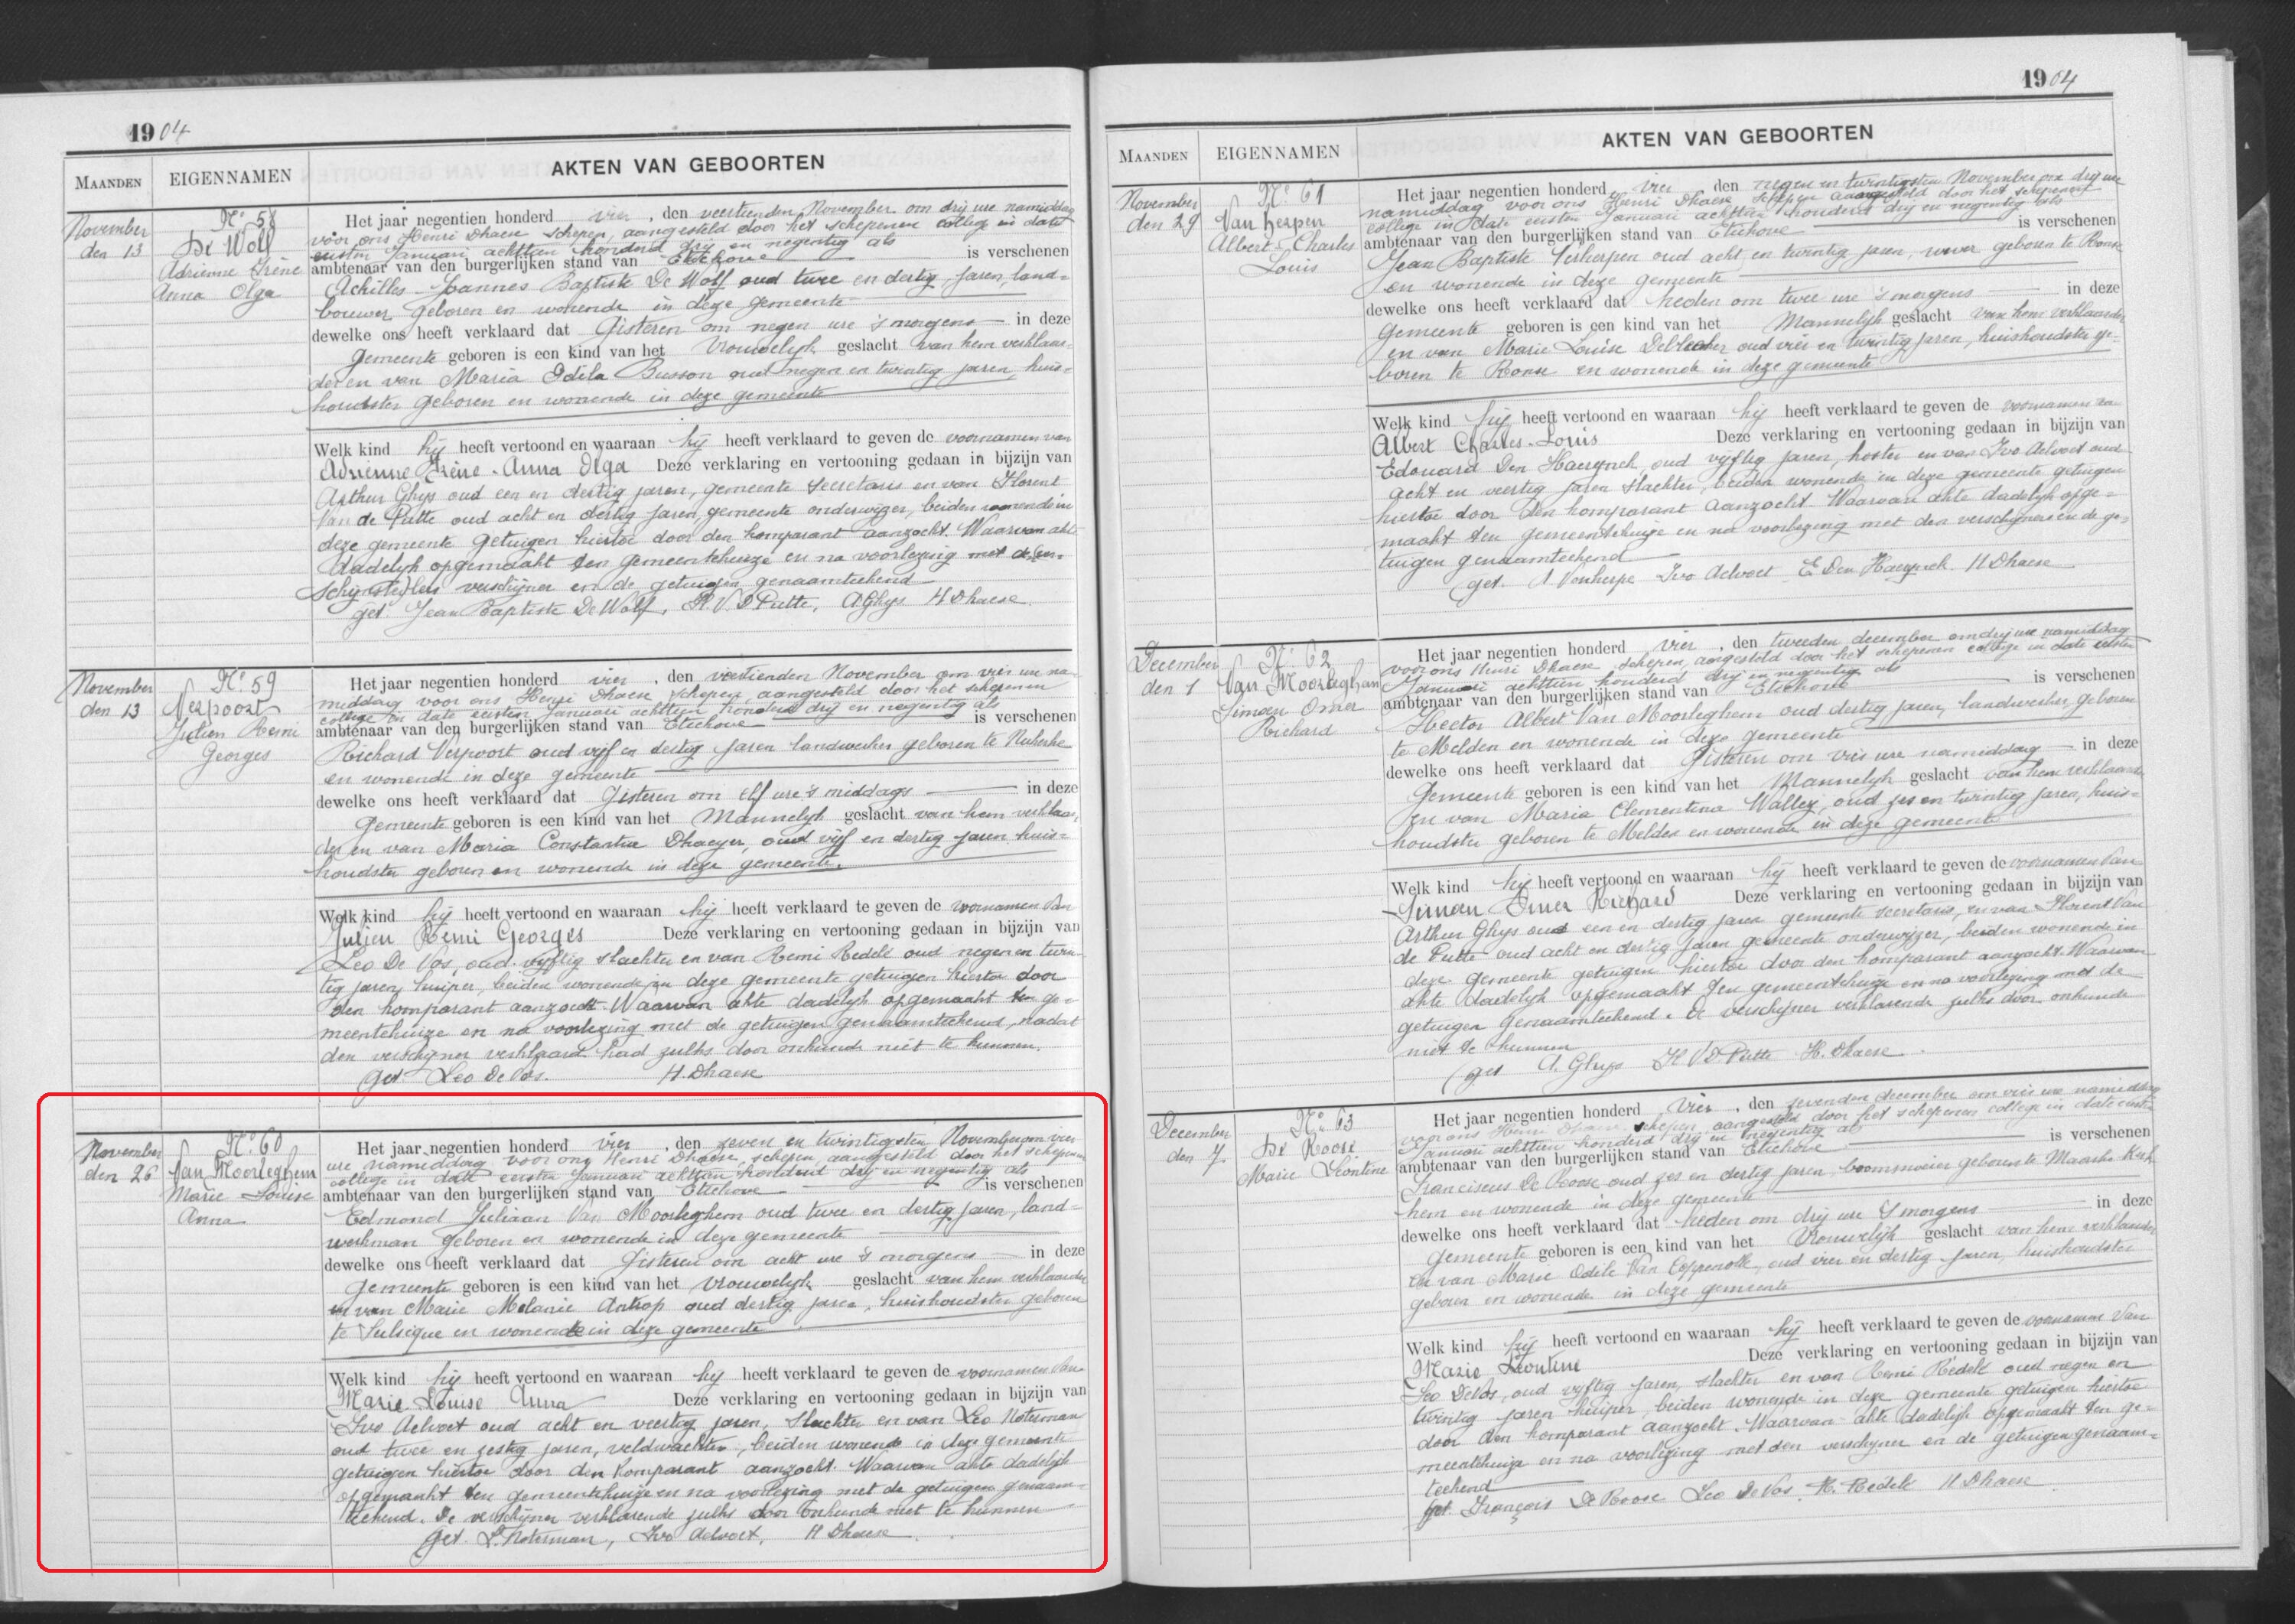 1904
MAANDEN EIGENNAMEN AKTEN VAN GEBOORTEN
November
den 13
No 58
De Wolf
Adrienne Irène
Anna Olga
Het jaar negentien honderd vier, den veertienden November om drij ure namiddag
voor ons Henri Dhaese schepen, aangesteld door het schepenen college in date
eersten Januari achttien honderd drij en negentig als
ambtenaar van den burgerlijken stand van Etichove is verschenen
Achilles Joannes Baptiste De Wolf oud twee en dertig jaren, land=
bouwer geboren en wonende in deze gemeente
dewelke ons heeft verklaard dat Gisteren om negen ure 's morgens in deze
gemeente geboren is een kind van het Vrouwelijk geslacht van hem verklaar=
der en van Maria Odila Busson oud negen en twintig jaren, huis=
houdster geboren en wonende in deze gemeente
Welk kind hij heeft vertoond en waaraan hij heeft verklaard te geven de voornamen van
Adrienne Irène-Anna Olga Deze verklaring en vertooning gedaan in bijzijn van
Arthur Ghys oud een en dertig jaren, gemeente secretaris en van Florent
Van de Putte oud acht en dertig jaren, gemeente onderwijzer, beiden wonende in
deze gemeente getuigen hiertoe door den komparant aanzocht. Waarvan akte
dadelijk opgemaakt ten gemeentehuize en na voorlezing met de
verschijner en de getuigen genaamteekend
get. Jean Baptiste De Wolf, Fl. V. D Putte, A Ghys H Dhaese
November
den 13
No 59
Verpoort
Julien Remi
Georges
Het jaar negentien honderd vier, den veertienden November om vier ure na=
middag voor ons Henri Dhaese, schepen, aangesteld door het schepenen
college in date eersten Januari achttien honderd drij en negentig als
ambtenaar van den burgerlijken stand van Etichove is verschenen
Richard Verpoort oud vijf en dertig jaren landwerker geboren te Nukerke
en wonende in deze gemeente
dewelke ons heeft verklaard dat Gisteren om elf ure 's middags in deze
gemeente geboren is een kind van het Mannelijk geslacht van hem verklaar
der en van Maria Constantia Dhaeyer, oud vijf en dertig jaren huis=
houdster geboren en wonende in deze gemeente.
Welk kind hij heeft vertoond en waaraan hij heeft verklaard te geven de voornamen van
Julien Remi Georges Deze verklaring en vertooning gedaan in bijzijn van
Leo De Vos, oud vijftig slachter en van Remi Redelé oud negen en twin=
tig jaren, kuiper, beiden wonende in deze gemeente getuigen hiertoe door
den komparant aanzocht. Waarvan akte dadelijk opgemaakt ten ge=
meentehuize en na voorlezing met de getuigen genaamteekend, nadat
den verschijner verklaard had zulks door onkunde niet te kunnen.
get Leo De Vos. H. Dhaese
November
den 26
No 60
Van Moorleghem
Marie Louise
Anna
Het jaar negentien honderd vier, den zeven en twintigsten November om vier
ure namiddag voor ons Henri Dhaese, schepen, aangesteld door het schepenen
college in date eersten Januari achttien honderd drij en negentig als
ambtenaar van den burgerlijken stand van Etichove is verschenen
Edmond Juliaan Van Moorleghem oud twee en dertig jaren, land=
werkman geboren en wonende in deze gemeente
dewelke ons heeft verklaard dat Gisteren om acht ure 's morgens in deze
gemeente geboren is een kind van het vrouwelijk geslacht van hem verklaarder
en van Marie Melanie Antrop oud dertig jaren, huishoudster geboren
te Sulsique en wonende in deze gemeente
Welk kind hij heeft vertoond en waaraan hij heeft verklaard te geven de voornamen van
Marie Louise Anna Deze verklaring en vertooning gedaan in bijzijn van
Ivo Aelvoet oud acht en veertig jaren, slachter en van Leo Noterman
oud twee en zestig jaren, veldwachter, beiden wonende in deze gemeente
getuigen hiertoe door den komparant aanzocht. Waarvan akte dadelijk
opgemaakt ten gemeentehuize en na voorlezing met de getuigen genaam=
teekend. De verschijner verklarende zulks door onkunde niet te kunnen
get. L. Noterman, Ivo Aelvoet, H Dhaese
1904
MAANDEN EIGENNAMEN AKTEN VAN GEBOORTEN
November
den 29
No 61
Van herpen
Albert-Charles
Louis
Het jaar negentien honderd vier den negen en twintigsten November om drij ure
namiddag voor ons Henri Dhaese schepen aangesteld door het schepenen
college in date eersten Januari achttien honderd drij en negentig als
ambtenaar van den burgerlijken stand van Etichove is verschenen
Jean Baptiste oud acht en twintig jaren, wever geboren te Ronse
en wonende in deze gemeente
dewelke ons heeft verklaard dat heden om twee ure 's morgens in deze
gemeente geboren is een kind van het Mannelijk geslacht van hem verklaarder
en van Marie Louise oud vier en twintig jaren, huishoudster ge=
boren te Ronse en wonende in deze gemeente
Welk kind hij heeft vertoond en waaraan hij heeft verklaard te geven de voornamen van
Albert Charles-Louis Deze verklaring en vertooning gedaan in bijzijn van
Edouard Den Haerynck, oud vijftig jaren, koster en van Ivo Aelvoet oud
acht en veertig jaren slachter, beiden wonende in deze gemeente getuigen
hiertoe door den komparant aanzocht. Waarvan akte dadelijk opge=
maakt ten gemeentehuize en na voorlezing met den verschijner en de ge=
tuigen genaamteekend
get. A Vanherpe Ivo Aelvoet E Den Haerynck H Dhaese
December
den 1
No 62
Van Moorleghem
Simoen Omer
Richard
Het jaar negentien honderd vier, den tweeden december om drij ure namiddag
voor ons Henri Dhaese, schepen, aangesteld door het schepenen college in date eersten
Januari achttien honderd drij en negentig als
ambtenaar van den burgerlijken stand van Etichove is verschenen
Hector Albert Van Moorleghem oud dertig jaren, landwerker geboren
te Melden en wonende in deze gemeente
dewelke ons heeft verklaard dat Gisteren om vier ure namiddag in deze
gemeente geboren is een kind van het Mannelijk geslacht van hem verklaarder
en van Maria Clementina Walley, oud zes en twintig jaren, huis=
houdster geboren te Melden en wonende in deze gemeente
Welk kind hij heeft vertoond en waaraan hij heeft verklaard te geven de voornamen van
Simoen Omer Richard Deze verklaring en vertooning gedaan in bijzijn van
Arthur Ghys oud een en dertig jaren gemeente secretaris, en van Florent Van
de Putte oud acht en dertig jaren gemeente onderwijzer, beiden wonende in
deze gemeente getuigen hiertoe door den komparant aanzocht. Waarvan
akte dadelijk opgemaakt ten gemeentehuize en na voorlezing met de
getuigen genaamteekend. de verschijner verklarende zulks door onkunde
niet te kunnen
get A. Ghys Fl V D Putte H. Dhaese
December
den 7
No 63
De Roose
Marie Leontine
Het jaar negentien honderd vier, den zevenden december om vier ure namiddag
voor ons Henri Dhaese schepen aangesteld door het schepenen college in date eersten
Januari achttien honderd drij en negentig als
ambtenaar van den burgerlijken stand van Etichove is verschenen
Franciscus De Roose oud zes en dertig jaren, boomsnoeier geboren te Maarke-Kerk
hem en wonende in deze gemeente
dewelke ons heeft verklaard dat heden om drij ure 's morgens in deze
gemeente geboren is een kind van het Vrouwelijk geslacht van hem verklaarder
en van Marie Odile Van Coppenolle, oud vier en dertig jaren, huishoudster
geboren en wonende in deze gemeente
Welk kind hij heeft vertoond en waaraan hij heeft verklaard te geven de voornamen van
Marie Leontine Deze verklaring en vertooning gedaan in bijzijn van
Leo De Vos, oud vijftig jaren, slachter en van Remi Redelé oud negen en
twintig jaren kuiper, beiden wonende in deze gemeente getuigen hiertoe
door den komparant aanzocht. Waarvan akte dadelijk opgemaakt ten ge=
meentehuize en na voorlezing met den verschijner en de getuigen genaam=
teekend
get. François De Roose Leo De Vos. R. Redelé H Dhaese